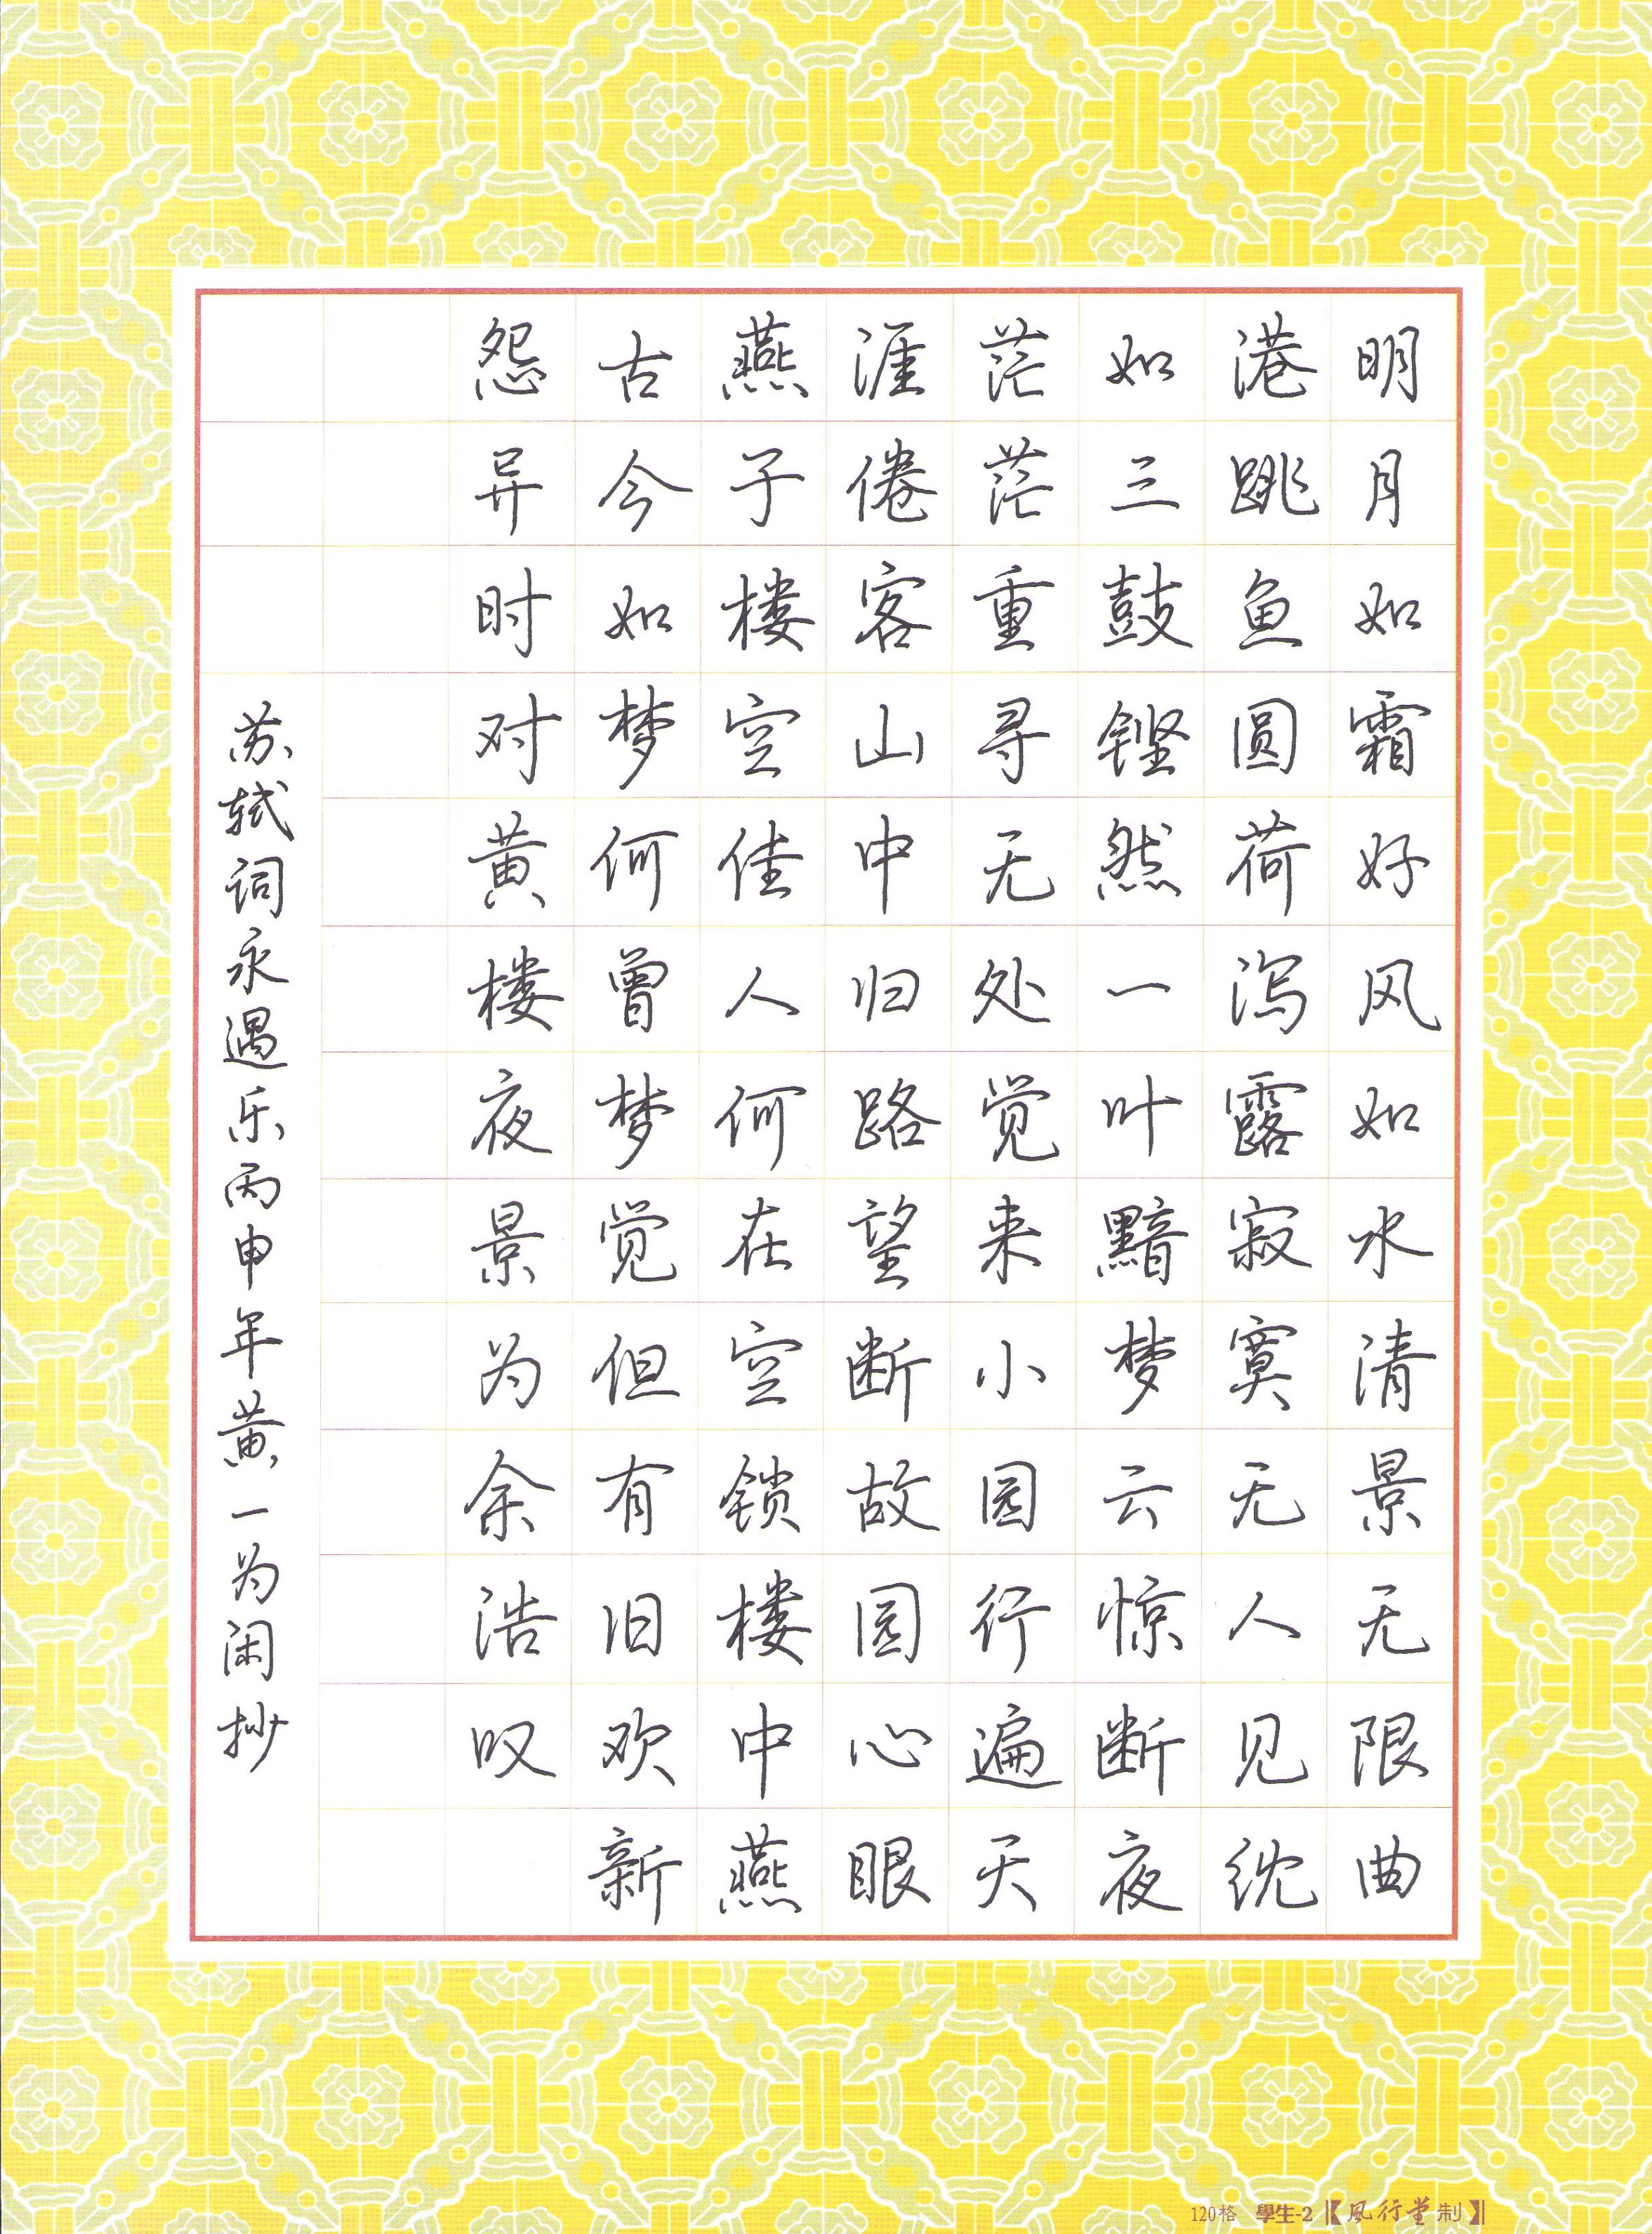 明月如霜好风如水清景无限曲
港跳鱼圆荷泻露寂寞无人见𬘘
如三鼓铿然一叶黯梦云惊断夜
茫茫重寻无处觉来小园行遍天
涯倦客山中归路望断故园心眼
燕子楼空佳人何在空锁楼中燕
古今如梦何曾梦觉但有旧欢新
怨异时对黄楼夜景为余浩叹
苏轼词永遇乐丙申年黄一为闲抄
120格 學生-2【風行堂制】